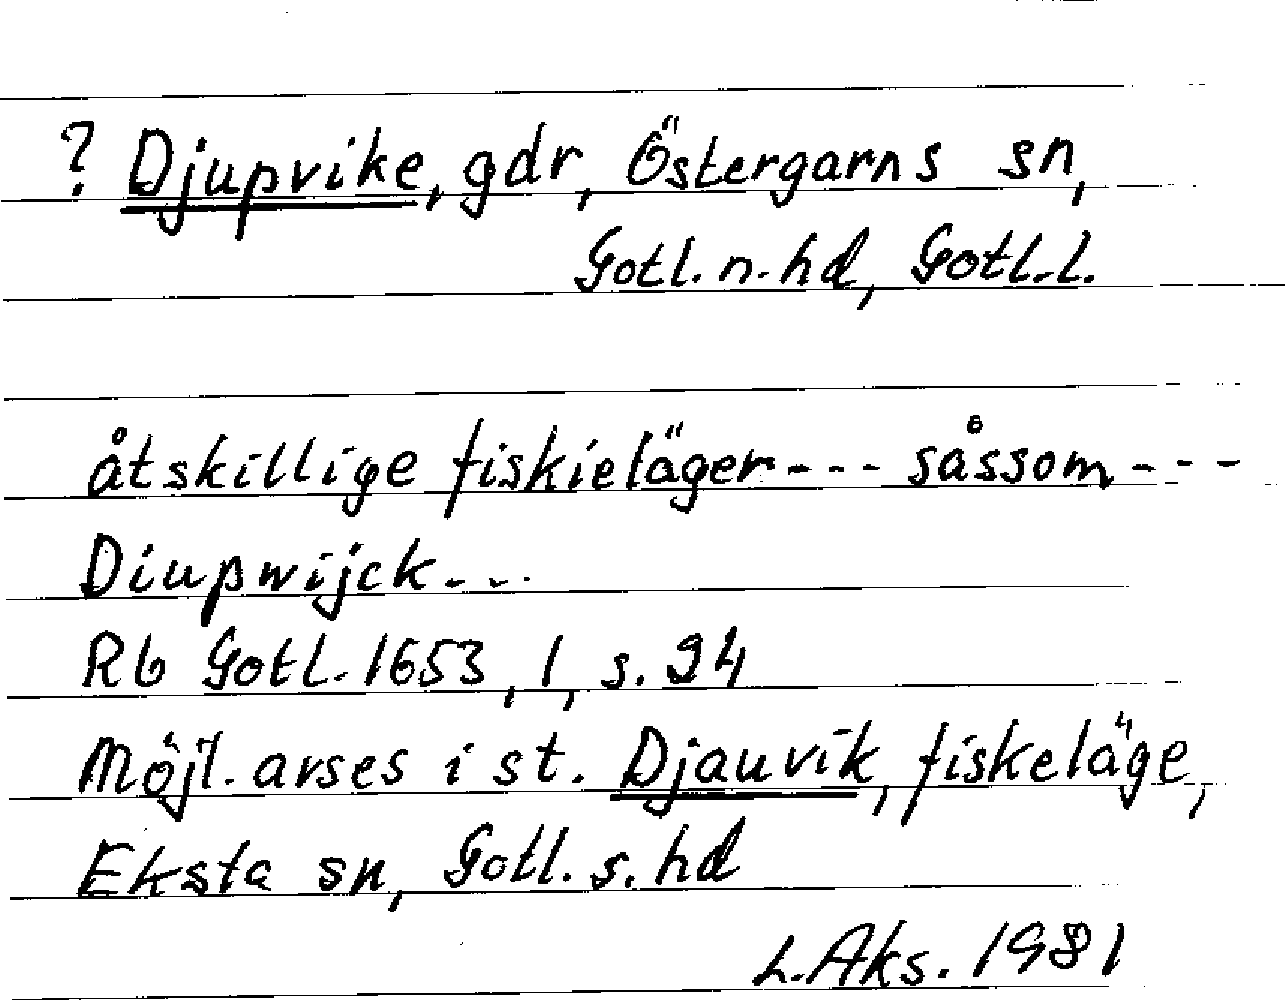 ? Djupvike, gdr, Östergarns sn,
Gotl. n. hd, Gotl. l.
åtskillige fiskieläger --- såssom ---
Diupwijck ---
Rb Gotl. 1653, 1, s. 24
Möjl. avses i st. Djauvik, fiskeläge,
Eksta sn, Gotl. s. hd
L. Aks. 1981